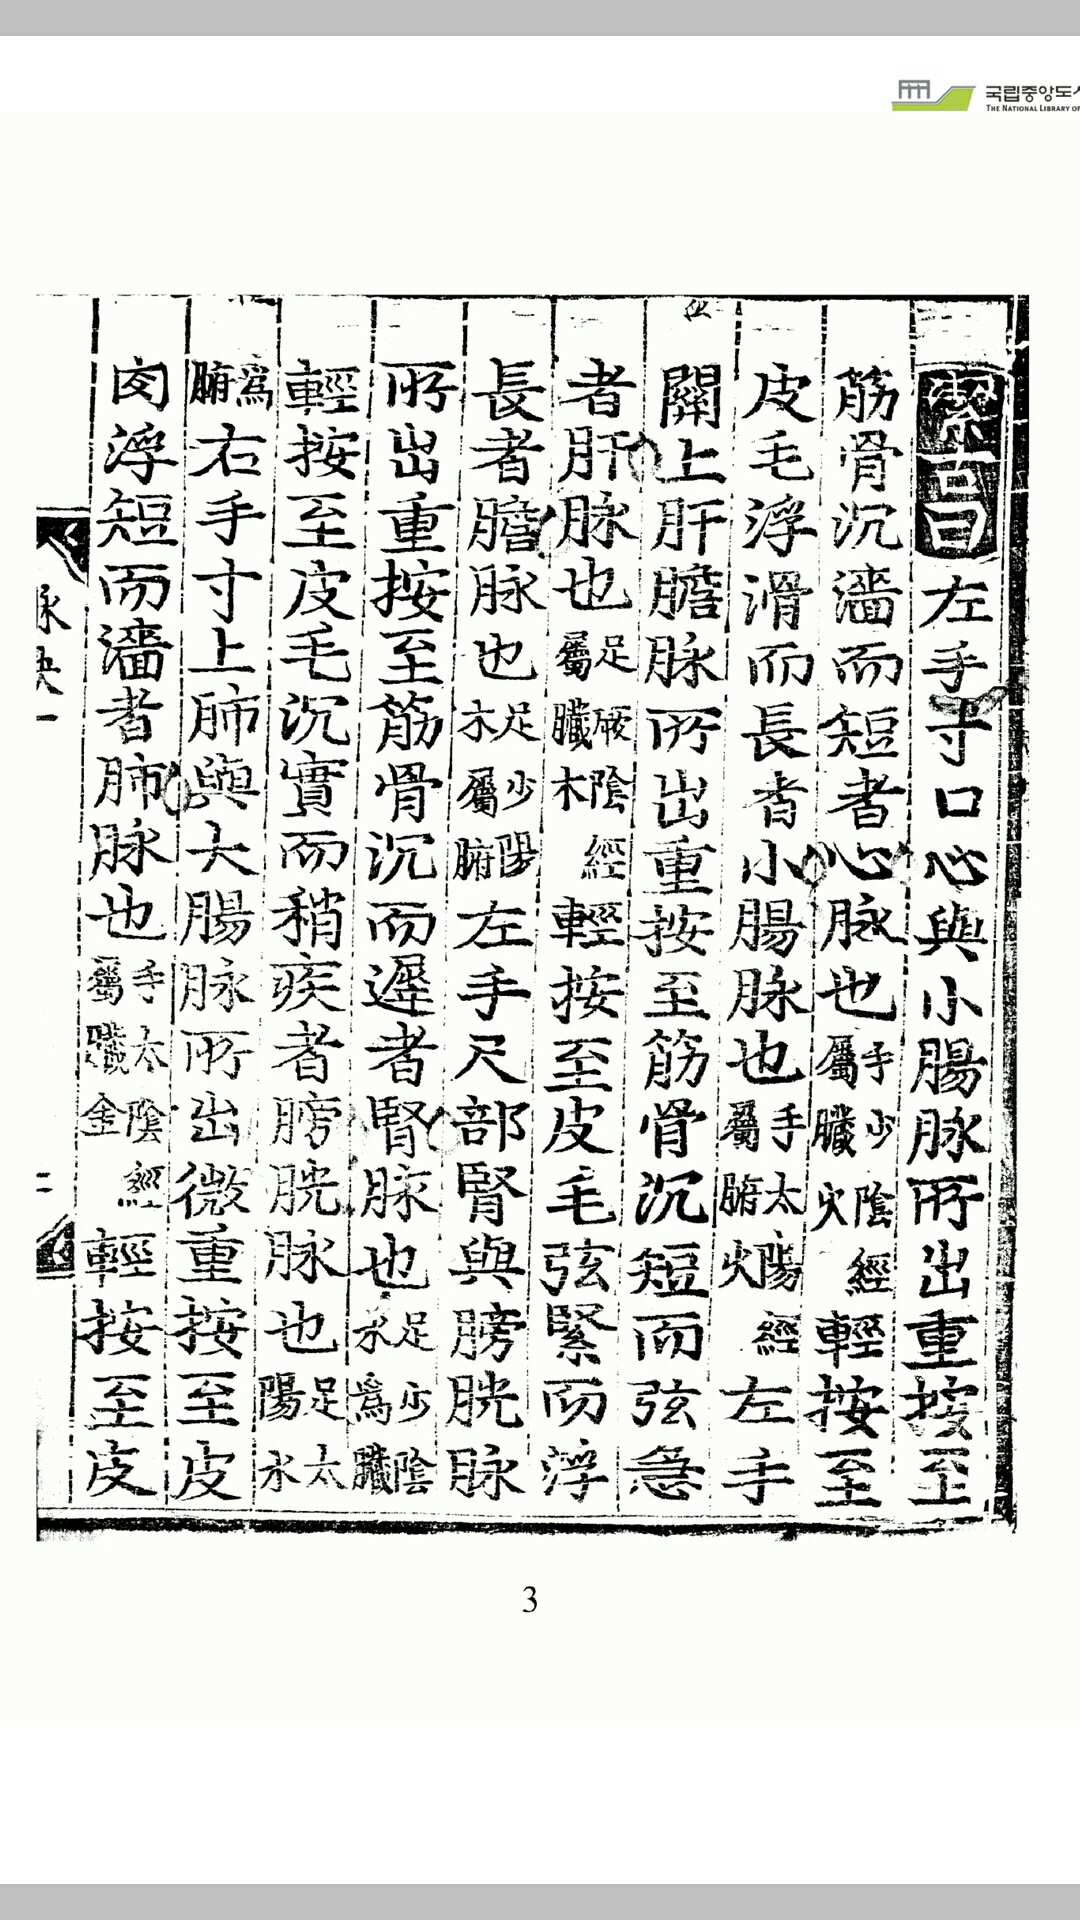 국립중앙도서
THE NATIONAL LIBRARY OF
潔古曰左手寸口心與小腸脉所出重按至
筋骨沉濇而短者心脉也手少陰經屬臟火輕按至
皮毛浮滑而長者小腸脉也手太陽經屬腑火左手
關上肝膽脉所出重按至筋骨沉短而弦急
者肝脉也足厥陰經屬臟木輕按至皮毛弦緊而浮
長者膽脉也足少陽木屬腑左手尺部腎與膀胱脉
所出重按至筋骨沉而遲者腎脉也足少陰水爲臟
輕按至皮毛沉實而稍疾者膀胱脉也足太陽水
爲腑右手寸上肺與大腸脉所出微重按至皮
肉浮短而濇者肺脉也手太陰經屬臟金輕按至皮
脉決一
二
3